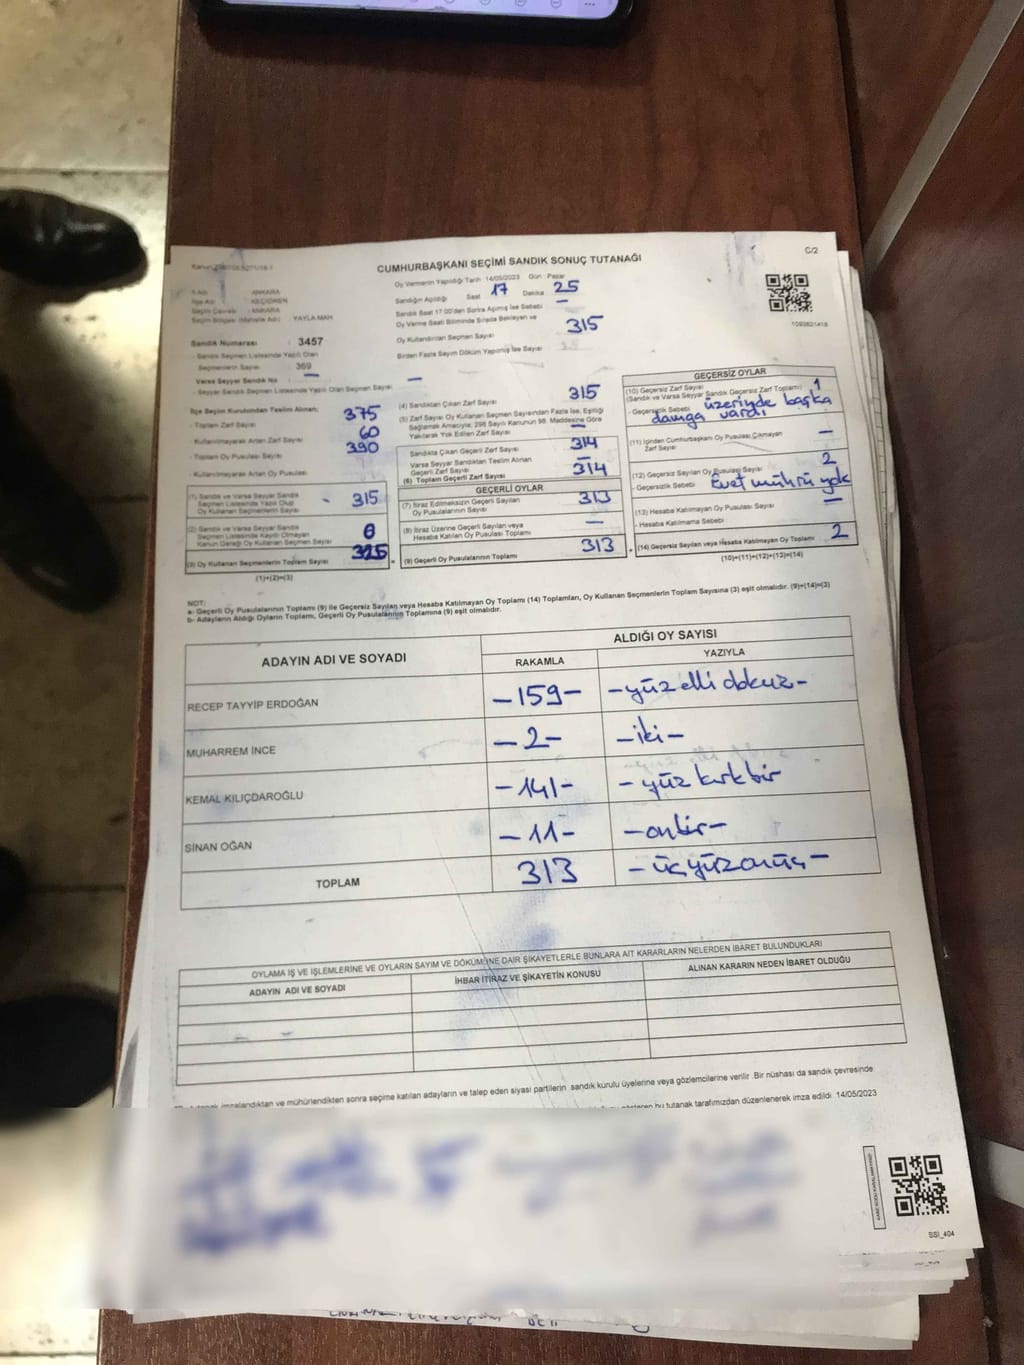 C/2
CUMHURBAŞKANI SEÇİMİ SANDIK SONUÇ TUTANAĞI
Oy Vermenin Yapıldığı Tarih 14/05/2023 Gün Pazar
İl Adı : ANKARA
İlçe Adı : KEÇİÖREN
Seçim Çevresi : ANKARA
Seçim Bölgesi (Mahalle Adı) : YAYLA MAH.
Sandık Numarası : 3457
- Sandık Seçmen Listesinde Yazılı Olan
Seçmenlerin Sayısı : 369
Varsa Seyyar Sandık No : —
- Seyyar Sandık Seçmen Listesinde Yazılı Olan Seçmen Sayısı —
Sandığın Açıldığı Saat 17 Dakika 25
Sandık Saat 17:00'den Sonra Açılmış İse Sebebi —
Oy Verme Saati Bitiminde Sırada Bekleyen ve
Oy Kullandırılan Seçmen Sayısı 315
Birden Fazla Sayım Döküm Yapılmış İse Sayısı
1093821418
İlçe Seçim Kurulundan Teslim Alınan;
- Toplam Zarf Sayısı 375
- Kullanılmayarak Artan Zarf Sayısı 60
- Toplam Oy Pusulası Sayısı 390
- Kullanılmayarak Artan Oy Pusulası
(1) Sandık ve Varsa Seyyar Sandık
Seçmen Listesinde Yazılı Olup
Oy Kullanan Seçmenlerin Sayısı 315
(2) Sandık ve Varsa Seyyar Sandık
Seçmen Listesinde Kayıtlı Olmayan
Kanun Gereği Oy Kullanan Seçmen Sayısı
(3) Oy Kullanan Seçmenlerin Toplam Sayısı
(1)+(2)=(3)
(4) Sandıktan Çıkan Zarf Sayısı 315
(5) Zarf Sayısı Oy Kullanan Seçmen Sayısından Fazla İse, Eşitliği
Sağlamak Amacıyla, 298 Sayılı Kanunun 98. Maddesine Göre
Yakılarak Yok Edilen Zarf Sayısı —
Sandıkta Çıkan Geçerli Zarf Sayısı 314
Varsa Seyyar Sandıktan Teslim Alınan
Geçerli Zarf Sayısı —
(6) Toplam Geçerli Zarf Sayısı 314
GEÇERLİ OYLAR
(7) İtiraz Edilmeksizin Geçerli Sayılan
Oy Pusulalarının Sayısı 313
(8) İtiraz Üzerine Geçerli Sayılan veya
Hesaba Katılan Oy Pusulası Toplamı —
(9) Geçerli Oy Pusulalarının Toplamı 313
GEÇERSİZ OYLAR
(10) Geçersiz Zarf Sayısı 1
(Sandık ve Varsa Seyyar Sandık Geçersiz Zarf Toplamı)
- Geçersizlik Sebebi üzerinde başka
damga vardı
(11) İçinden Cumhurbaşkanı Oy Pusulası Çıkmayan
Zarf Sayısı —
(12) Geçersiz Sayılan Oy Pusulası Sayısı 2
- Geçersizlik Sebebi Evet mührü yok
(13) Hesaba Katılmayan Oy Pusulası Sayısı —
- Hesaba Katılmama Sebebi
(14) Geçersiz Sayılan veya Hesaba Katılmayan Oy Toplamı 2
(10)+(11)+(12)+(13)=(14)
NOT:
a- Geçerli Oy Pusulalarının Toplamı (9) ile Geçersiz Sayılan veya Hesaba Katılmayan Oy Toplamı (14) Toplamları, Oy Kullanan Seçmenlerin Toplam Sayısına (3) eşit olmalıdır. (9)+(14)=(3)
b- Adayların Aldığı Oyların Toplamı, Geçerli Oy Pusulalarının Toplamına (9) eşit olmalıdır.
ADAYIN ADI VE SOYADI
ALDIĞI OY SAYISI
RAKAMLA YAZIYLA
RECEP TAYYİP ERDOĞAN –159– –yüz elli dokuz–
MUHARREM İNCE –2– –iki–
KEMAL KILIÇDAROĞLU –141– –yüz kırk bir
SİNAN OĞAN –11– –onbir–
TOPLAM 313 –üçyüzonüç–
OYLAMA İŞ VE İŞLEMLERİNE VE OYLARIN SAYIM VE DÖKÜMÜNE DAİR ŞİKAYETLERLE BUNLARA AİT KARARLARIN NELERDEN İBARET BULUNDUKLARI
ADAYIN ADI VE SOYADI İHBAR İTİRAZ VE ŞİKAYETİN KONUSU ALINAN KARARIN NEDEN İBARET OLDUĞU
tutanak imzalandıktan ve mühürlendikten sonra seçime katılan adayların ve talep eden siyasi partilerin sandık kurulu üyelerine veya gözlemcilerine verilir. Bir nüshası da sandık çevresinde
bu tutanak tarafımızdan düzenlenerek imza edildi. 14/05/2023
SSI_404